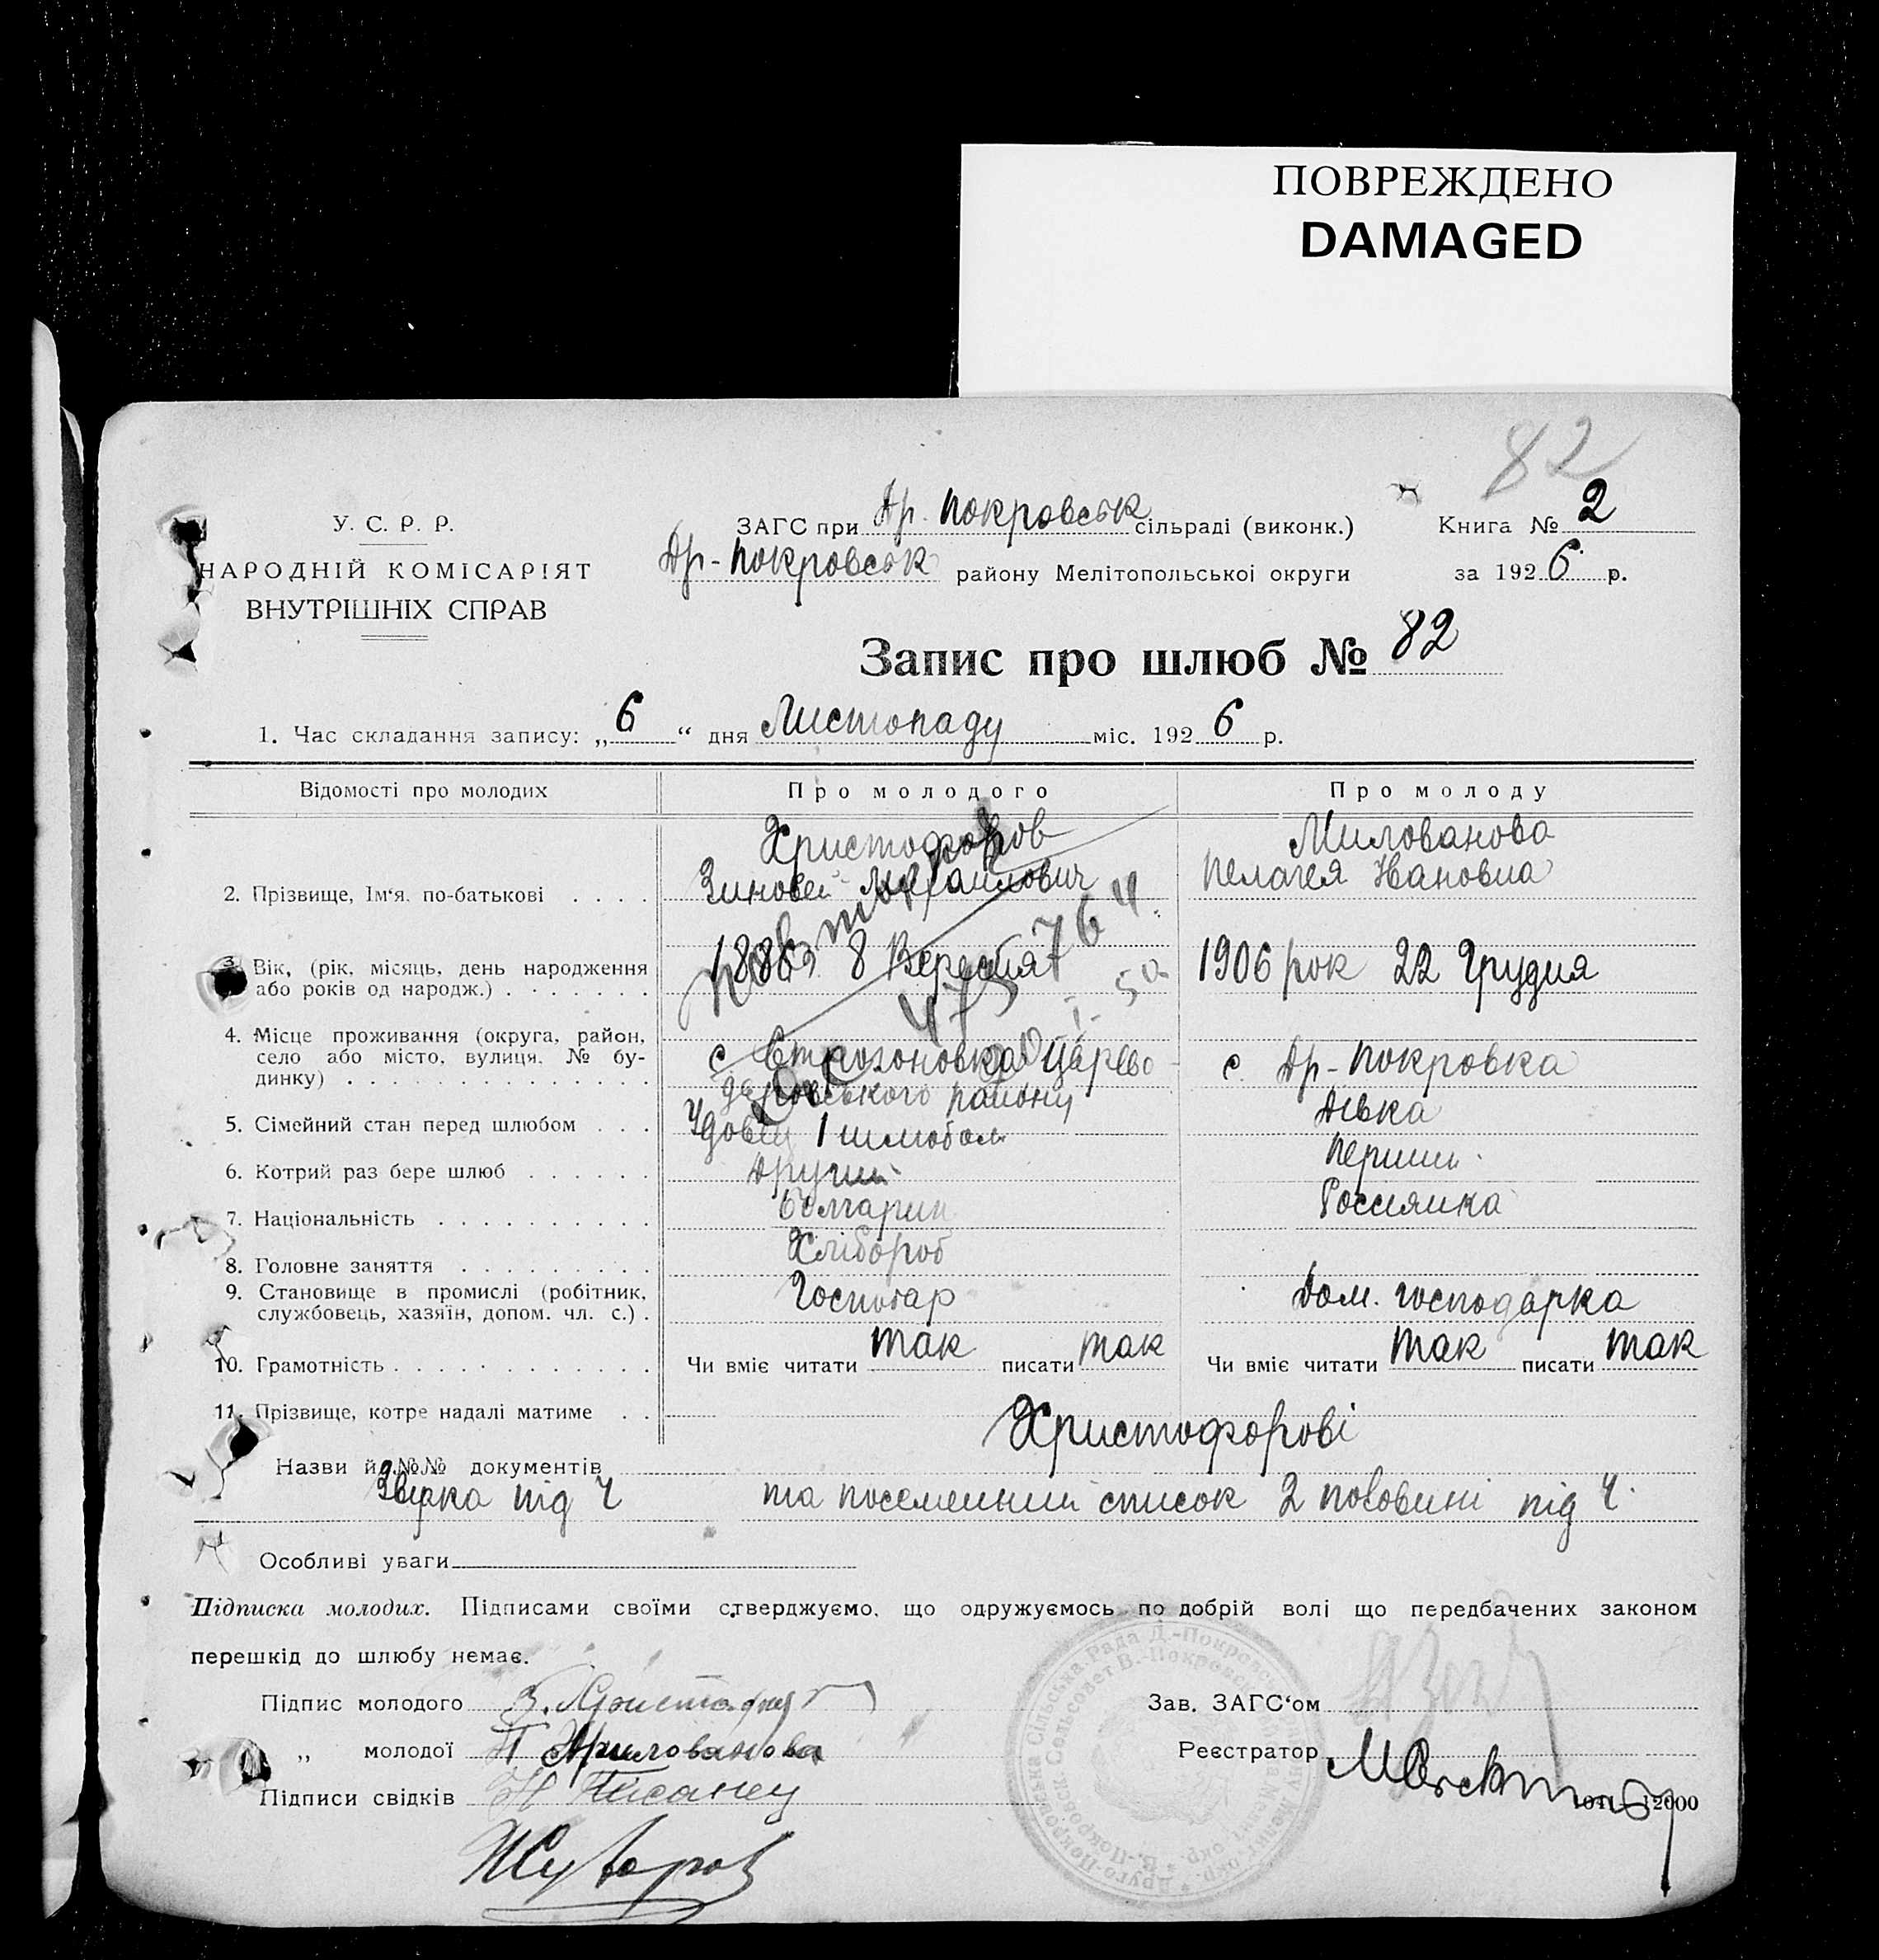 ПОВРЕЖДЕНО
DAMAGED
82
У. С. Р. Р.
НАРОДНІЙ КОМІСАРІЯТ
ВНУТРІШНІХ СПРАВ
ЗАГС при Др. Покровськ сільраді (виконк.)
Др-Покровськ району Мелітопольської округи
Книга № 2
за 1926 р.
Запис про шлюб № 82
1. Час складання запису: „6“ дня Листопаду міс. 1926 р.
Відомості про молодих
Про молодого
Про молоду
2. Прізвище, Ім'я, по-батькові
Христофоров
Зиновей Михайлович
Милованова
Пелагея Ивановна
3. Вік, (рік, місяць, день народження
або років од народж.)
1886 8 Вересня
1906 рок 22 Грудня
4. Місце проживання (округа, район,
село або місто, вулиця, № бу-
динку)
с Строгоновка Царево-
с. Др-Покровка
5. Сімейний стан перед шлюбом
Удовец 1 шлюбом
Дівка
6. Котрий раз бере шлюб
Другий
Перший
7. Національність
Болгарин
Россиянка
8. Головне заняття
Хлібороб
9. Становище в промислі (робітник,
службовець, хазяїн, допом. чл. с.)
Господар
Дом. господарка
10. Грамотність
Чи вміє читати так писати так
Чи вміє читати так писати так
11. Прізвище, котре надалі матиме
Христофорові
Назви й №№ документів
під Ч та посемейний список 2 половини під Ч.
Особливі уваги
Підписка молодих. Підписами своїми стверджуємо, що одружуємось по добрій волі що передбачених законом
перешкід до шлюбу немає.
Підпис молодого З. Христофор
„ молодої П Милованова
Підписи свідків Писанец
Зав. ЗАГС'ом
Реєстратор
12000